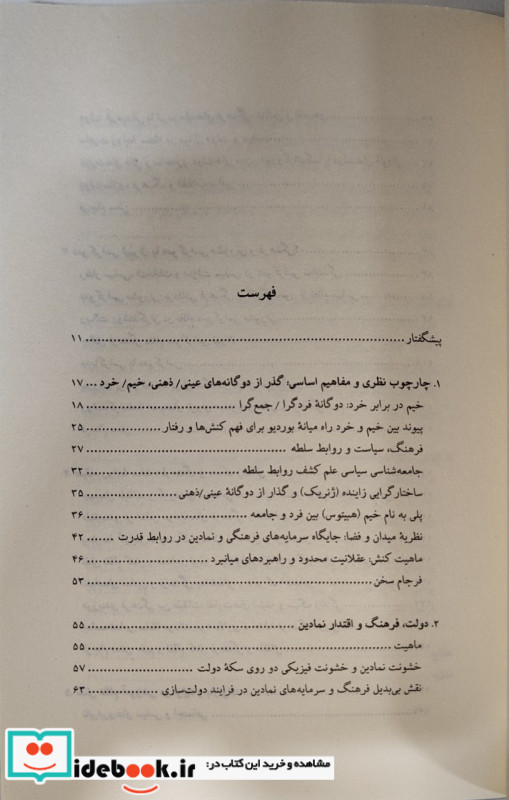 فهرست
پیشگفتار ........ ۱۱
۱. چارچوب نظری و مفاهیم اساسی: گذر از دوگانه‌های عینی/ ذهنی، خیم/ خرد ... ۱۷
خیم در برابر خرد: دوگانهٔ فردگرا / جمع‌گرا ........ ۱۸
پیوند بین خیم و خرد راه میانهٔ بوردیو برای فهم کنش‌ها و رفتار ........ ۲۵
فرهنگ، سیاست و روابط سلطه ........ ۲۷
جامعه‌شناسی سیاسی علم کشف روابط سلطه ........ ۳۲
ساختارگرایی زاینده (ژنریک) و گذار از دوگانهٔ عینی/ذهنی ........ ۳۵
پلی به نام خیم (هبیتوس) بین فرد و جامعه ........ ۳۶
نظریهٔ میدان و فضا: جایگاه سرمایه‌های فرهنگی و نمادین در روابط قدرت ........ ۴۲
ماهیت کنش: عقلانیت محدود و راهبردهای میانبرد ........ ۴۶
فرجام سخن ........ ۵۳
۲. دولت، فرهنگ و اقتدار نمادین ........ ۵۵
ماهیت ........ ۵۵
خشونت نمادین و خشونت فیزیکی دو روی سکهٔ دولت ........ ۵۷
نقش بی‌بدیل فرهنگ و سرمایه‌های نمادین در فرایند دولت‌سازی ........ ۶۳
مشاهده و خرید این کتاب در:
idebook.ir